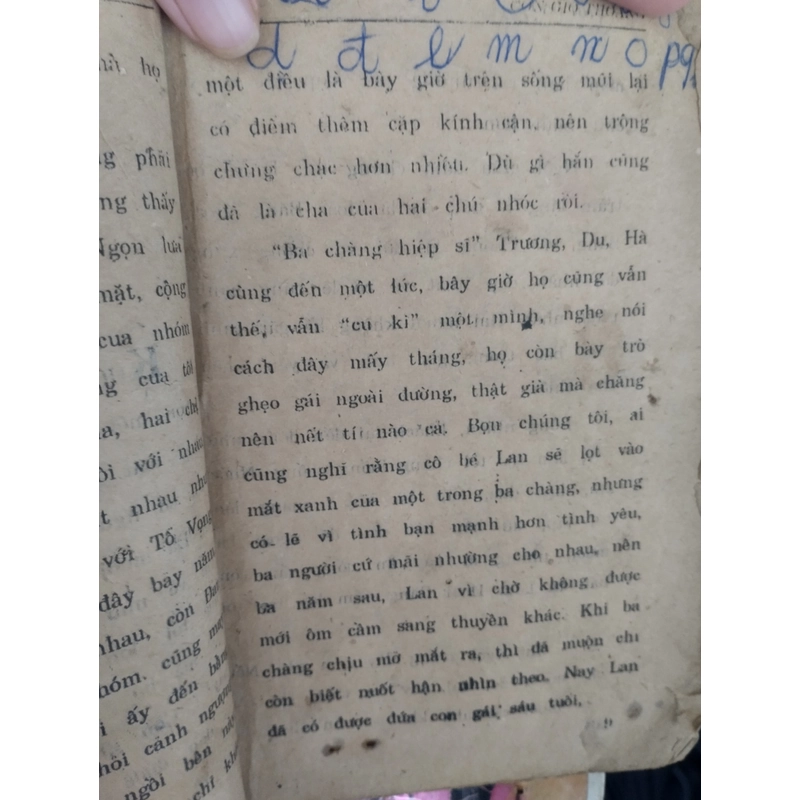 CƠN GIÓ THOẢNG
d đ l m n o pq
một điều là bây giờ trên sống mũi lại
có điểm thêm cặp kính cận, nên trông
chững chạc hơn nhiều. Dù gì hắn cũng
đã là cha của hai chú nhóc rồi.
"Ba chàng hiệp sĩ" Trương, Du, Hà
cùng đến một lúc, bây giờ họ cũng vẫn
thế, vẫn "cu ki" một mình, nghe nói
cách đây mấy tháng, họ còn bày trò
ghẹo gái ngoài đường, thật già mà chăng
nên nết tí nào cả. Bọn chúng tôi, ai
cũng nghĩ rằng cô bé Lan sẽ lọt vào
mắt xanh của một trong ba chàng, nhưng
có lẽ vì tình bạn mạnh hơn tình yêu,
ba người cứ mãi nhường cho nhau, nên
ba năm sau, Lan vì chờ không được
mới ôm cầm sang thuyền khác. Khi ba
chàng chịu mở mắt ra, thì đã muộn chỉ
còn biết nuốt hận nhìn theo. Nay Lan
đã có được đứa con gái sáu tuổi.
9
mà họ
phải
thấy
Ngọn lửa
mặt, cộng
của nhóm
của tôi
hai chị
với nhau
nhau như
với Tố Vọng
đây bay năm
nhau, còn
nhóm. cũng
ấy đến bằng
cảnh
ngồi bên
chỉ